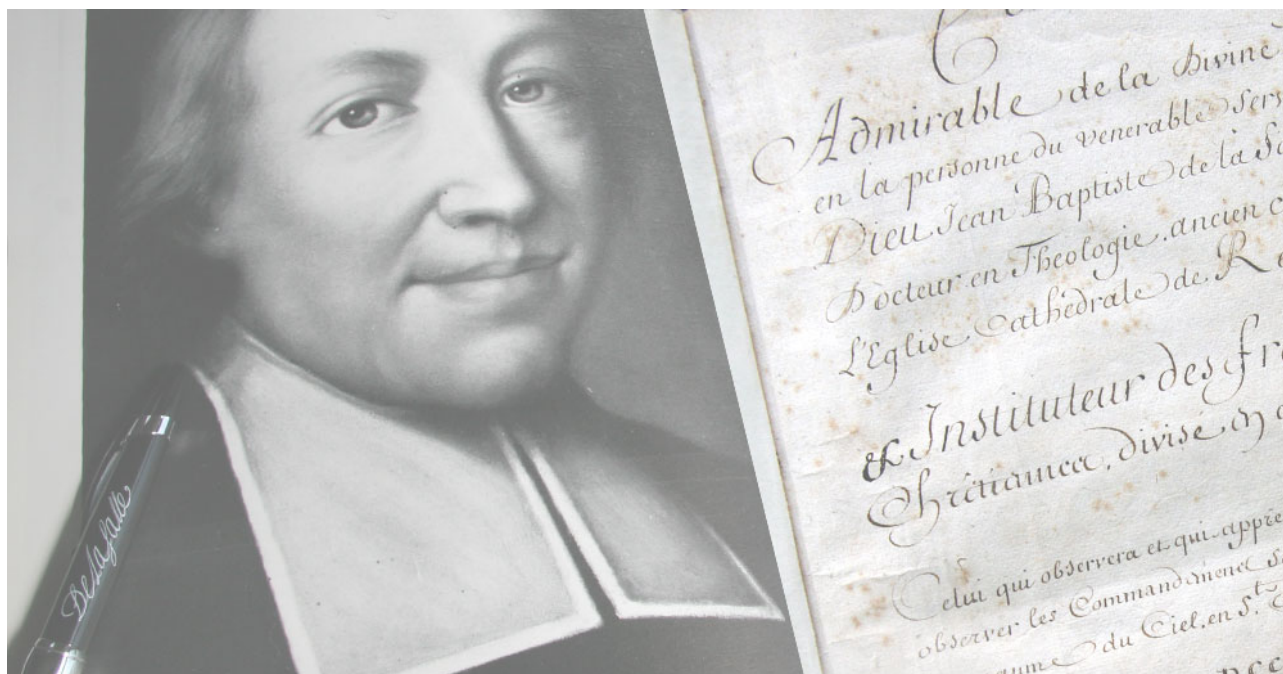 De La Salle
Admirable de la Divine
en la personne du venerable Serv
Dieu Jean Baptiste de la Sa
Docteur en Theologie, ancien c
l'Eglise Cathedrale de Re
& Instituteur des fre
divisé en
Celui qui observera et qui appre
observer les
du Ciel, en St.